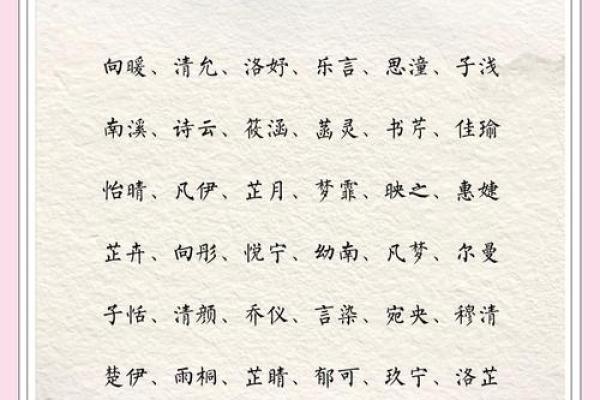 向暖、清允、洛妤、乐言、思潼、子浅
南溪、诗云、筱涵、菡灵、书芹、佳瑜
怡晴、凡伊、芷月、梦霏、映之、惠婕
芷卉、向彤、悦宁、幼南、凡梦、尔曼
子恬、清颜、乔仪、言染、宛央、穆清
楚伊、雨桐、芷睛、郁可、玖宁、洛芷